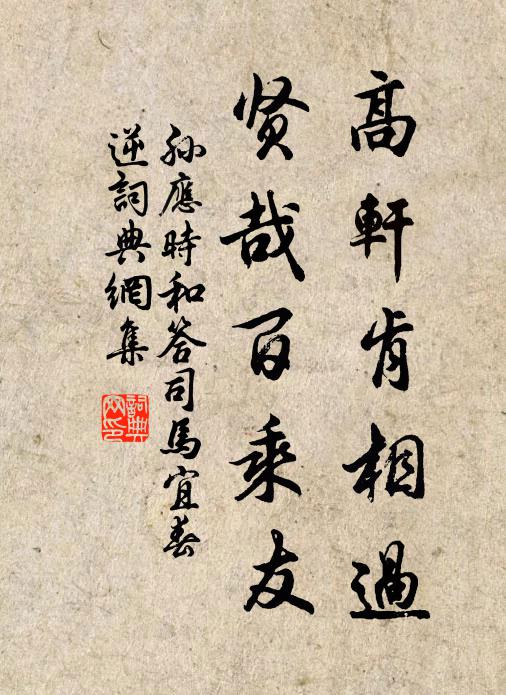 高軒肯相過
賢哉百乘友
孫應時和答司馬宜春
逆詞典網集
詞典網印